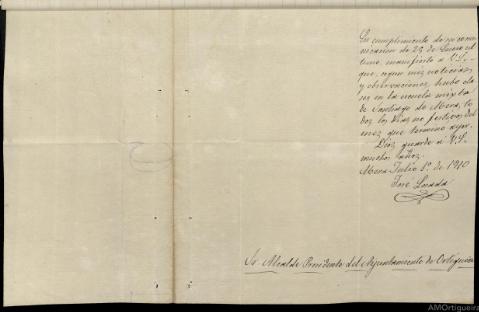 En cumplimiento de su comu
nicacion de 25 de Enero úl
timo, manifiesto a V.S.
que, segun mis noticias
y observaciones, hubo cla
se en la escuela mixta
de Santiago de Mera, to
dos los dias no festivos del
mes que terminó ayer.
Dios guarde a V.S.
muchos años.
Mera Julio 1º de 1910
Jose Losada
Sr. Alcalde Presidente del Ayuntamiento de Ortigueira
AMOrtigueira